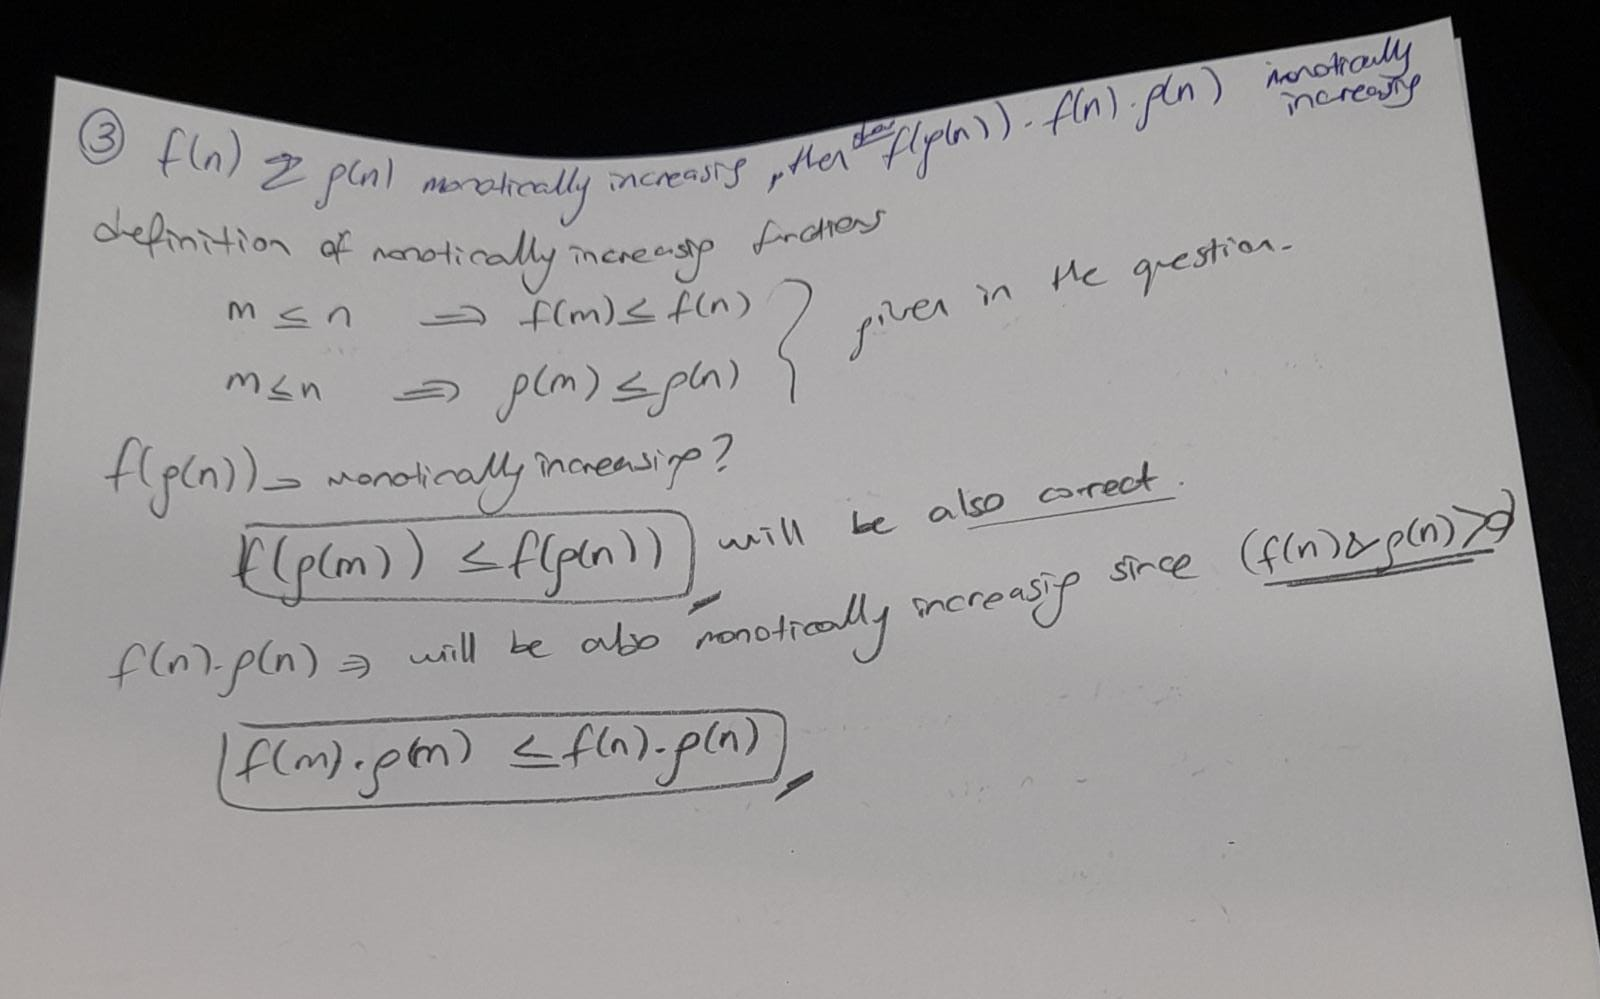 ③ f(n) & g(n) monotically increasing, then f(g(n)) - f(n).g(n) monotically increasing
definition of monotically increasing functions
m ≤ n ⇒ f(m) ≤ f(n)
m ≤ n ⇒ g(m) ≤ g(n) } given in the question.
f(g(n)) → monotically increasing?
f(g(m)) ≤ f(g(n)) will be also correct.
f(n).g(n) ⇒ will be also monotically increasing since (f(n) & g(n) > 0)
f(m).g(m) ≤ f(n).g(n)